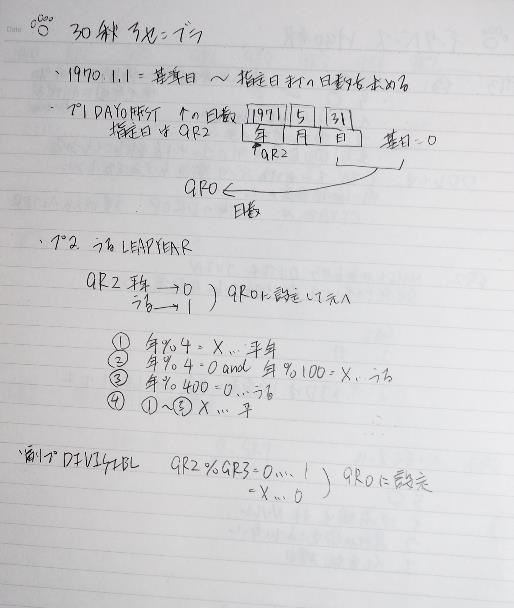 30秋 アセンブラ
・1970.1.1=基準日 〜 指定日までの日数を求める
・プ1 DAYOFFST ↑の日数 1971 5 31
指定日は GR2 年 月 日 基日=0
↑GR2
GR0 ←
日数
・プ2. うる LEAPYEAR
GR2 平年 → 0
うる → 1 ) GR0に設定して元へ
① 年%4=X... 平年
② 年%4=0 and 年%100=X.. うる
③ 年%400=0... うる
④ ①〜③X... 平
・副プ DIVISIBL GR2%GR3=0.... 1
=X... 0 ) GR0に設定